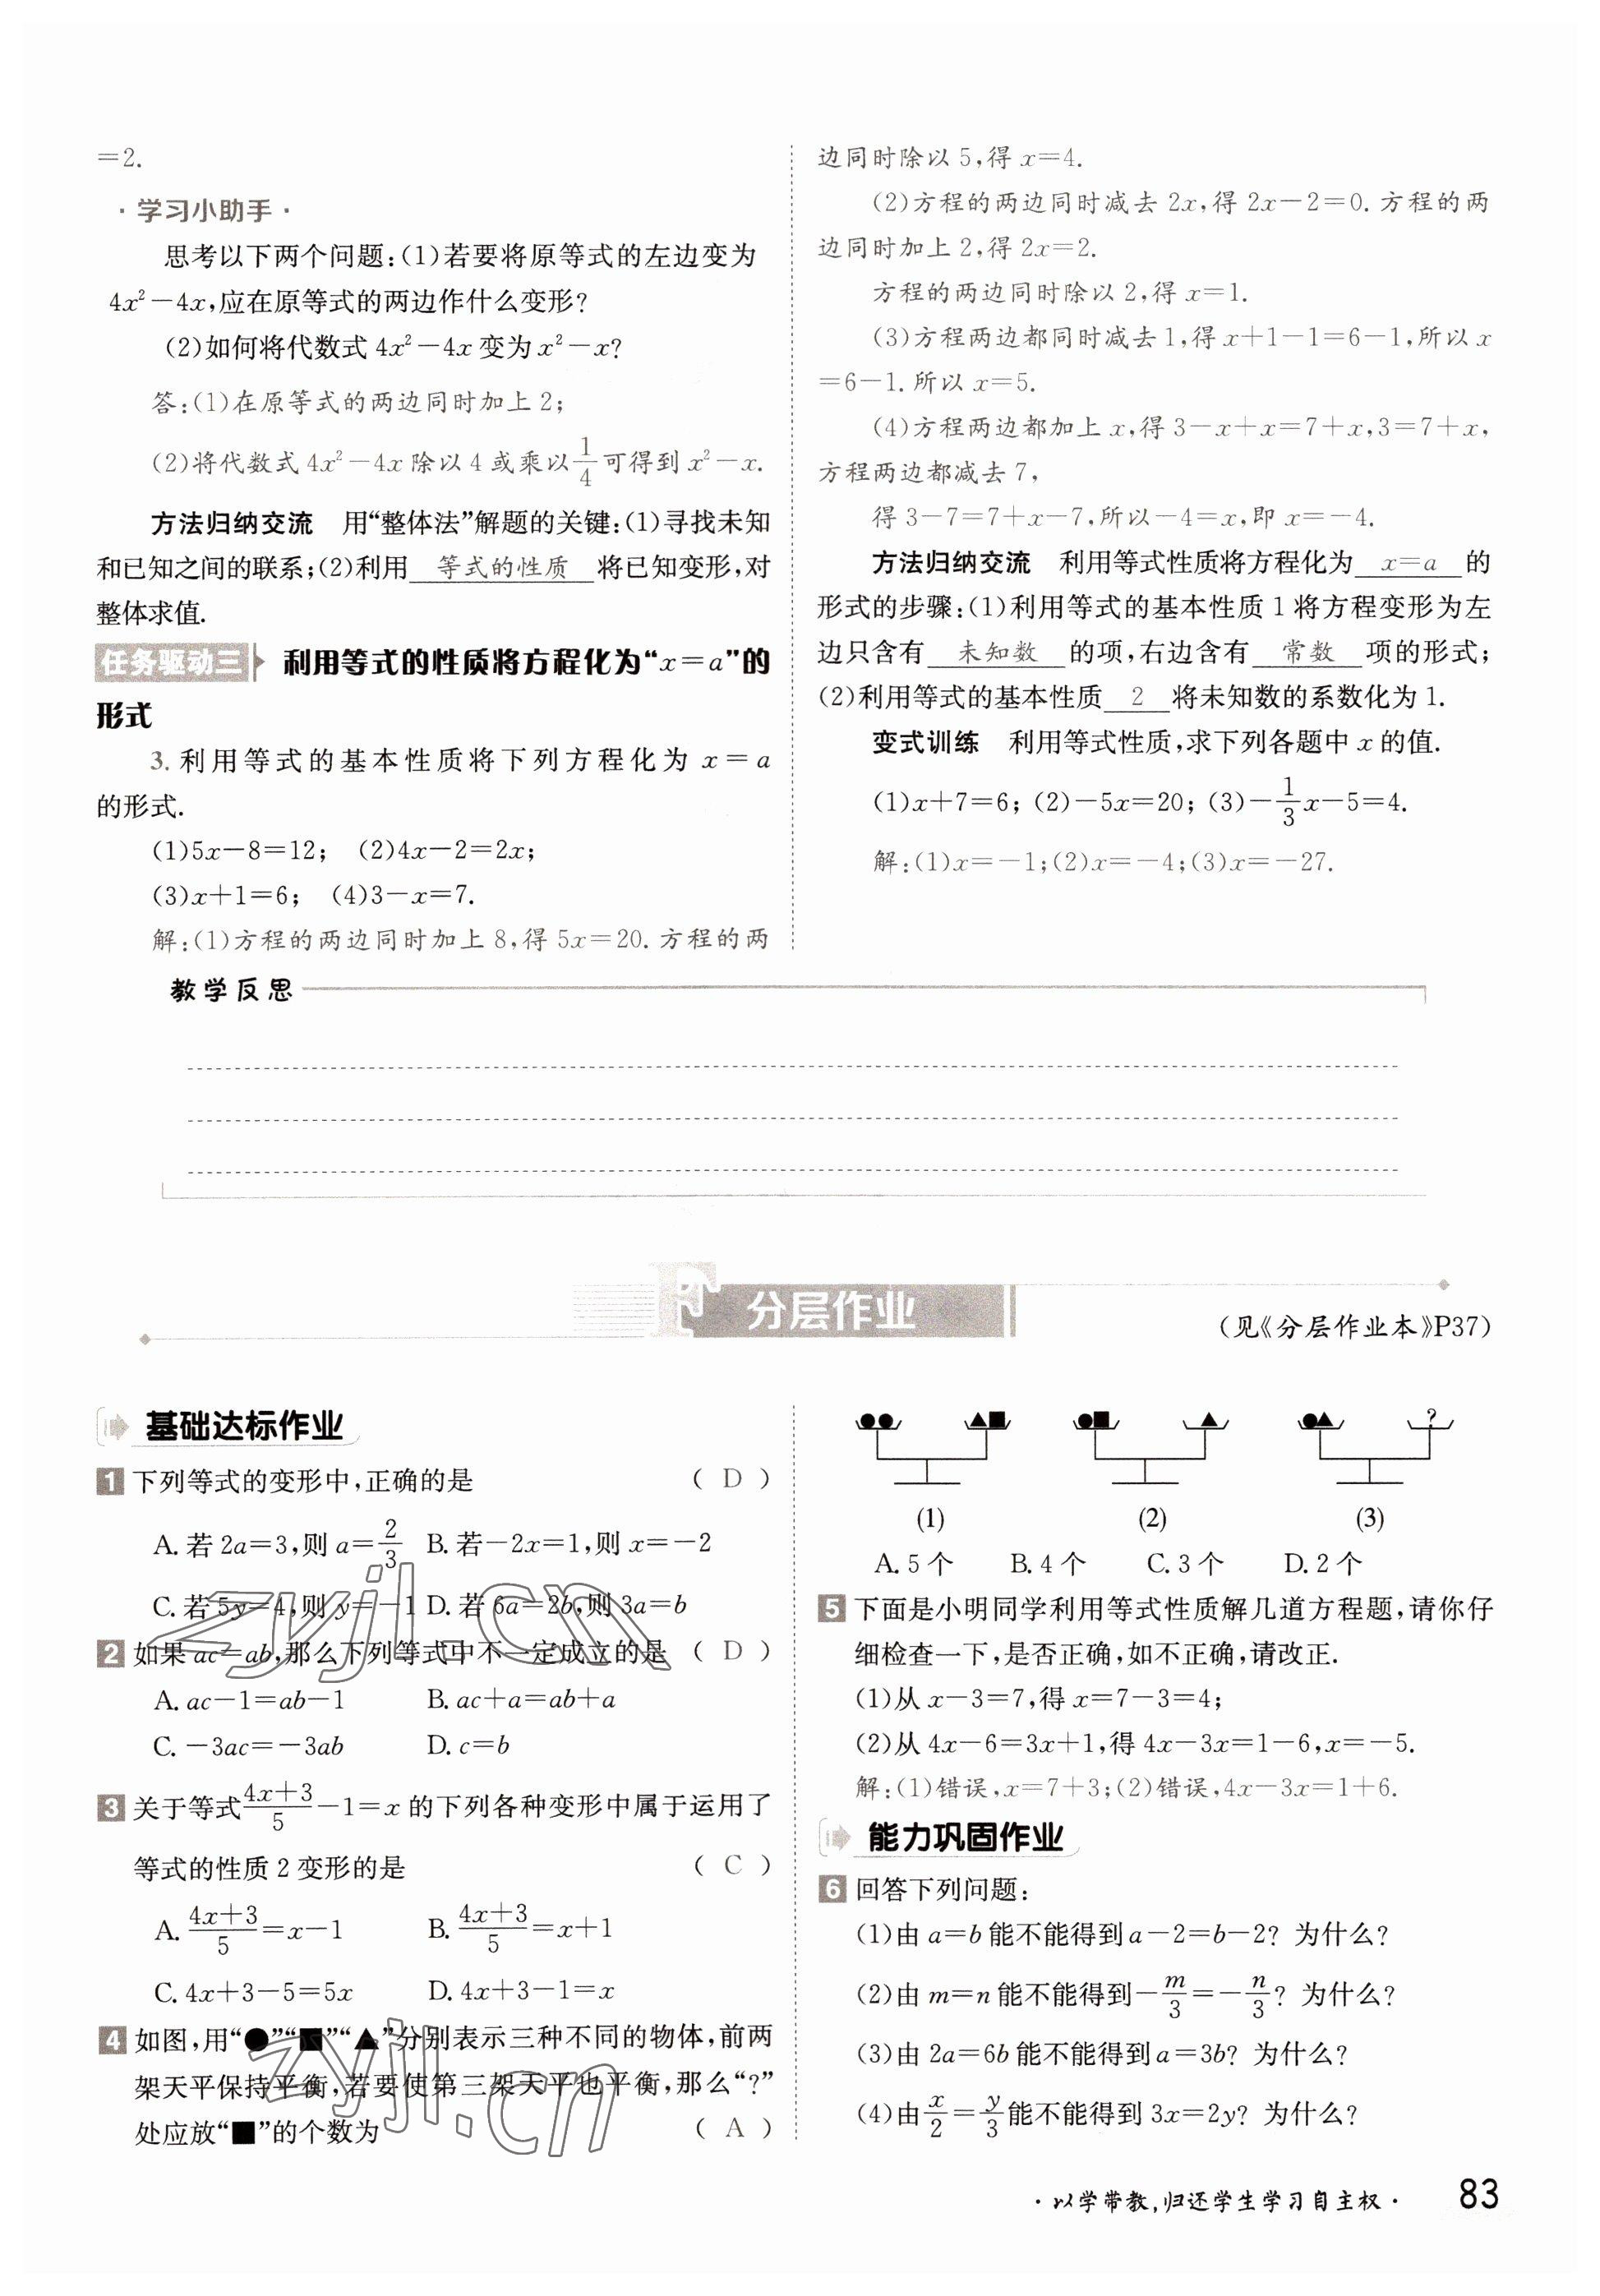 =2.
·学习小助手·
思考以下两个问题:(1)若要将原等式的左边变为
4x²－4x,应在原等式的两边作什么变形?
(2)如何将代数式 4x²－4x 变为 x²－x?
答:(1)在原等式的两边同时加上 2;
(2)将代数式 4x²－4x 除以 4 或乘以 1/4 可得到 x²－x.
方法归纳交流 用“整体法”解题的关键:(1)寻找未知
和已知之间的联系;(2)利用 等式的性质 将已知变形,对
整体求值.
任务驱动三 利用等式的性质将方程化为“x=a”的
形式
3. 利用等式的基本性质将下列方程化为 x=a
的形式.
(1)5x－8=12; (2)4x－2=2x;
(3)x+1=6; (4)3－x=7.
解:(1)方程的两边同时加上 8,得 5x=20. 方程的两
边同时除以 5,得 x=4.
(2)方程的两边同时减去 2x,得 2x－2=0. 方程的两
边同时加上 2,得 2x=2.
方程的两边同时除以 2,得 x=1.
(3)方程两边都同时减去 1,得 x+1－1=6－1,所以 x
=6－1. 所以 x=5.
(4)方程两边都加上 x,得 3－x+x=7+x,3=7+x,
方程两边都减去 7,
得 3－7=7+x－7,所以－4=x,即 x=－4.
方法归纳交流 利用等式性质将方程化为 x=a 的
形式的步骤:(1)利用等式的基本性质 1 将方程变形为左
边只含有 未知数 的项,右边含有 常数 项的形式;
(2)利用等式的基本性质 2 将未知数的系数化为 1.
变式训练 利用等式性质,求下列各题中 x 的值.
(1)x+7=6; (2)－5x=20; (3)－1/3x－5=4.
解:(1)x=－1;(2)x=－4;(3)x=－27.
教学反思
F 分层作业
(见《分层作业本》P37)
基础达标作业
1 下列等式的变形中,正确的是 ( D )
A. 若 2a=3,则 a=2/3 B. 若－2x=1,则 x=－2
C. 若 5y=4,则 y=－1 D. 若 6a=2b,则 3a=b
2 如果 ac=ab,那么下列等式中不一定成立的是 ( D )
A. ac－1=ab－1 B. ac+a=ab+a
C. －3ac=－3ab D. c=b
3 关于等式 (4x+3)/5－1=x 的下列各种变形中属于运用了
等式的性质 2 变形的是 ( C )
A. (4x+3)/5=x－1 B. (4x+3)/5=x+1
C. 4x+3－5=5x D. 4x+3－1=x
4 如图,用“●”“■”“▲”分别表示三种不同的物体,前两
架天平保持平衡,若要使第三架天平也平衡,那么“?”
处应放“■”的个数为 ( A )
?
(1) (2) (3)
A. 5 个 B. 4 个 C. 3 个 D. 2 个
5 下面是小明同学利用等式性质解几道方程题,请你仔
细检查一下,是否正确,如不正确,请改正.
(1)从 x－3=7,得 x=7－3=4;
(2)从 4x－6=3x+1,得 4x－3x=1－6,x=－5.
解:(1)错误,x=7+3;(2)错误,4x－3x=1+6.
能力巩固作业
6 回答下列问题:
(1)由 a=b 能不能得到 a－2=b－2? 为什么?
(2)由 m=n 能不能得到－m/3=－n/3? 为什么?
(3)由 2a=6b 能不能得到 a=3b? 为什么?
(4)由 x/2=y/3 能不能得到 3x=2y? 为什么?
·以学带教,归还学生学习自主权·
83
zyjl.cn
zyjl.cn